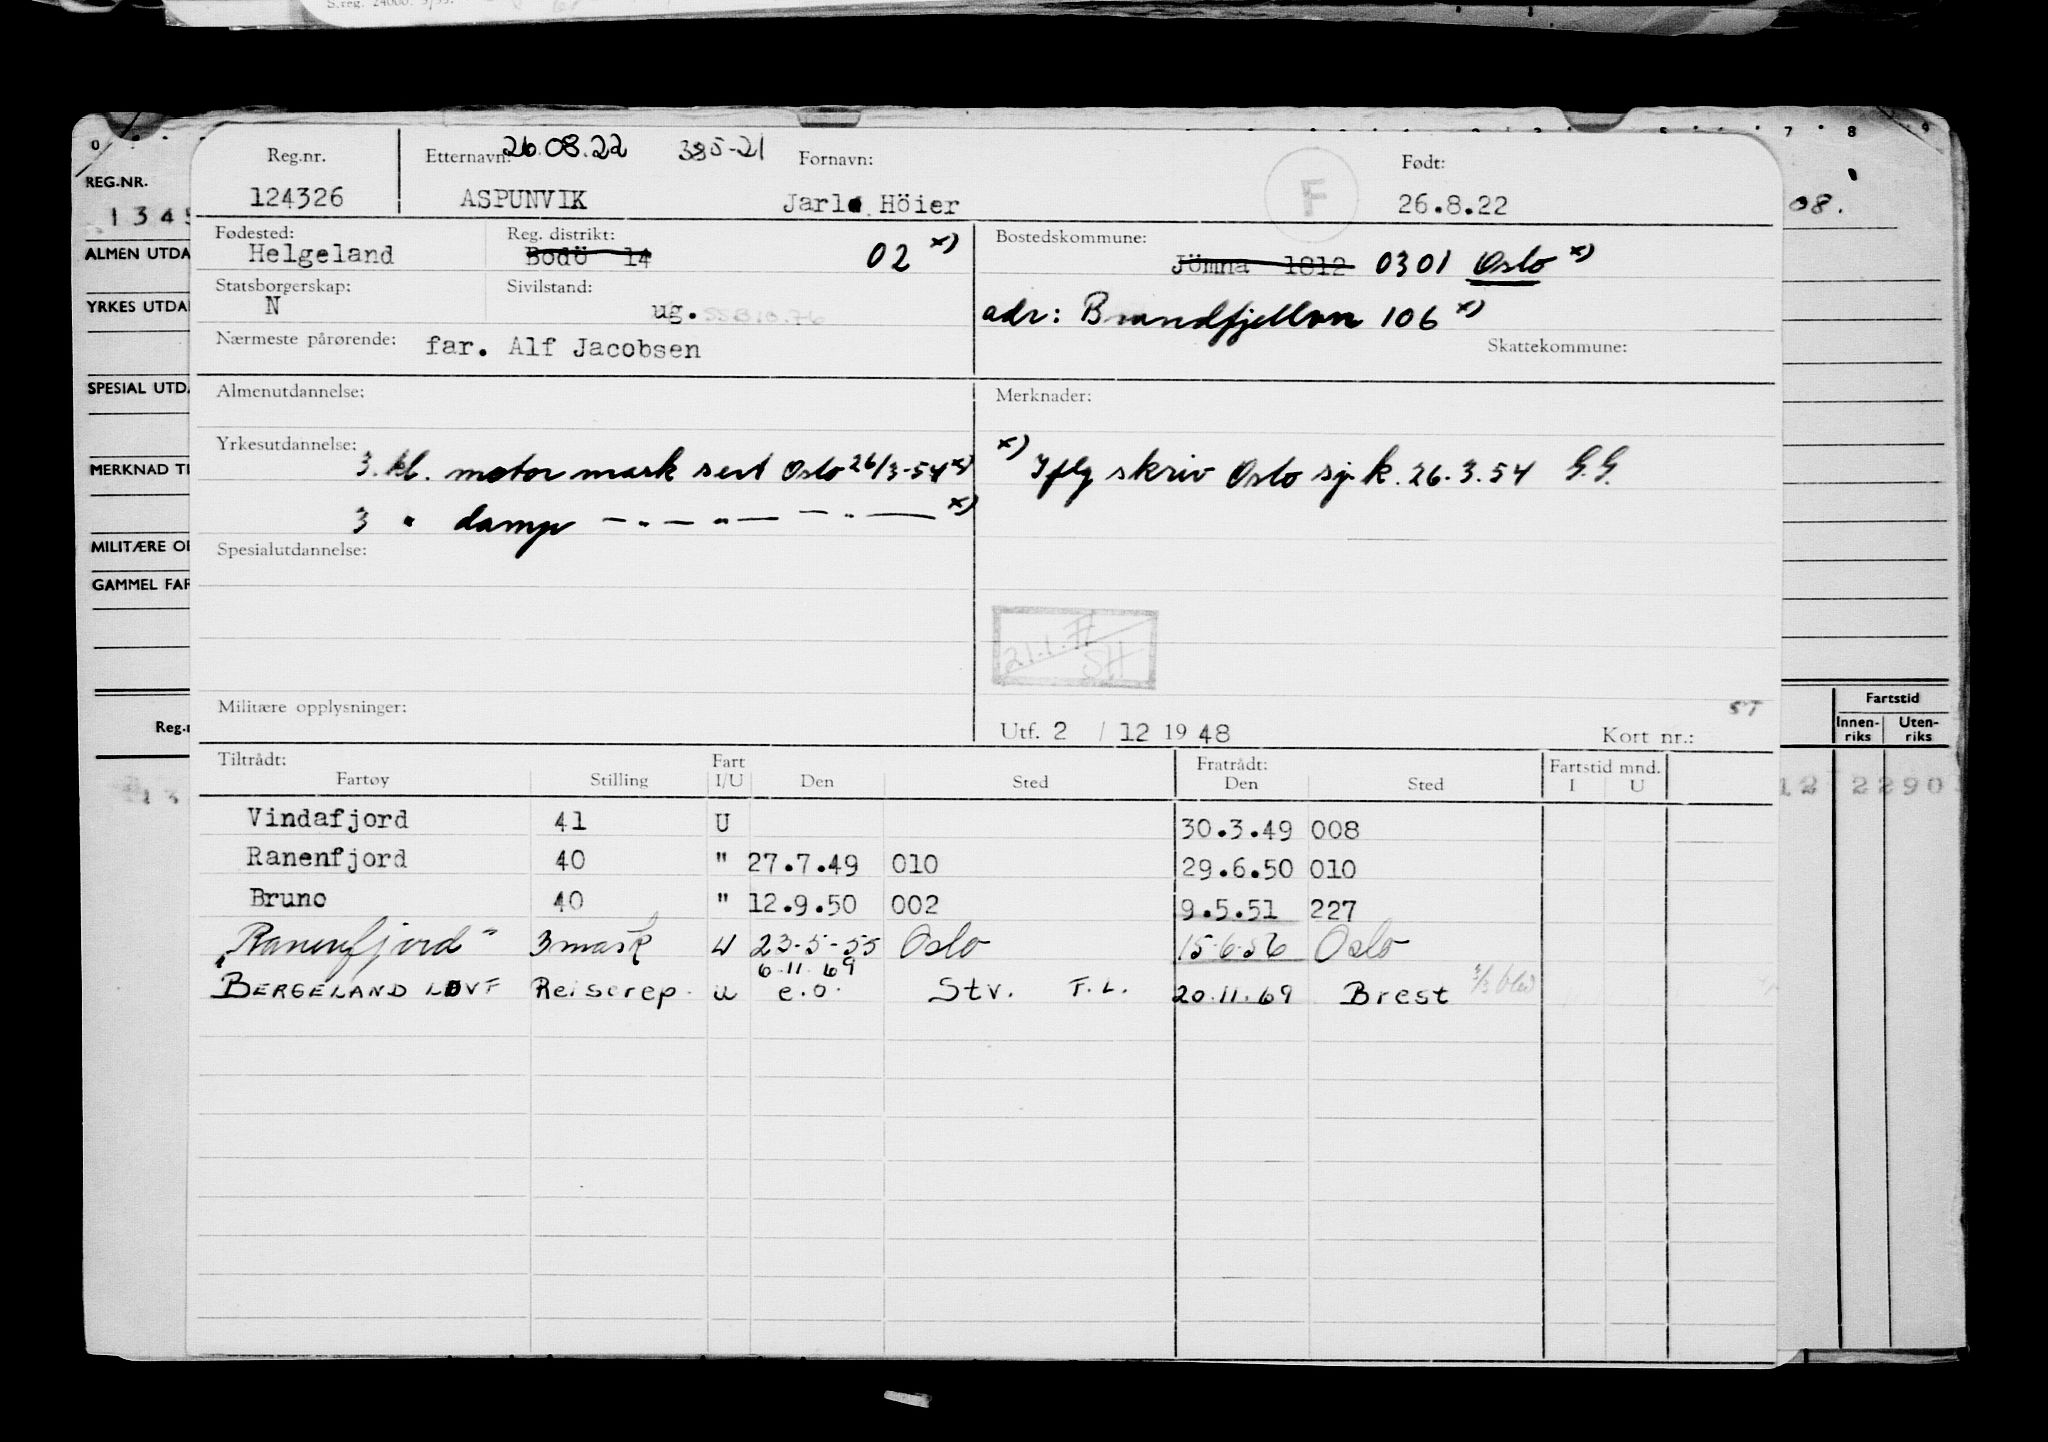 S.reg. 24000. 3/53.
0 7 8 9
REG.NR.
ALMEN UTDA
YRKES UTDA
SPESIAL UTD.
MERKNAD TI
MILITÆRE O
GAMMEL FAR
Reg.n
08.
Fartstid
Innen-riks Uten-riks
12 2290
Reg.nr. Etternavn: 26.08.22 395-21 Fornavn: Født:
124326 ASPUNVIK Jarle Höier F 26.8.22
Fødested: Reg. distrikt: Bostedskommune:
Helgeland Bodö 14 02 x) Jömna 1812 0301 Oslo x)
Statsborgerskap: Sivilstand:
N ug. adr: Brandfjellvn 106 x)
Nærmeste pårørende: far. Alf Jacobsen Skattekommune:
Almenutdannelse: Merknader:
Yrkesutdannelse: 3. kl. motor mask sert Oslo 26/3-54 x) x) Iflg skriv Oslo sj.k. 26.3.54 G.G.
3 " damp — " — " — " — x)
Spesialutdannelse:
21.1. SH
Militære opplysninger: ST
Utf. 2 / 12 19 48 Kort nr.:
Tiltrådt: Fart Fratrådt: Fartstid mnd.
Fartøy Stilling I/U Den Sted Den Sted I U
Vindafjord 41 U 30.3.49 008
Ranenfjord 40 " 27.7.49 010 29.6.50 010
Bruno 40 " 12.9.50 002 9.5.51 227
"Ranenfjord" 3 mask U 23-5-55 Oslo 15-6-56 Oslo
6.11.69
BERGELAND LDVF Reiserep. u e.o. Stv. F.L. 20.11.69 Brest